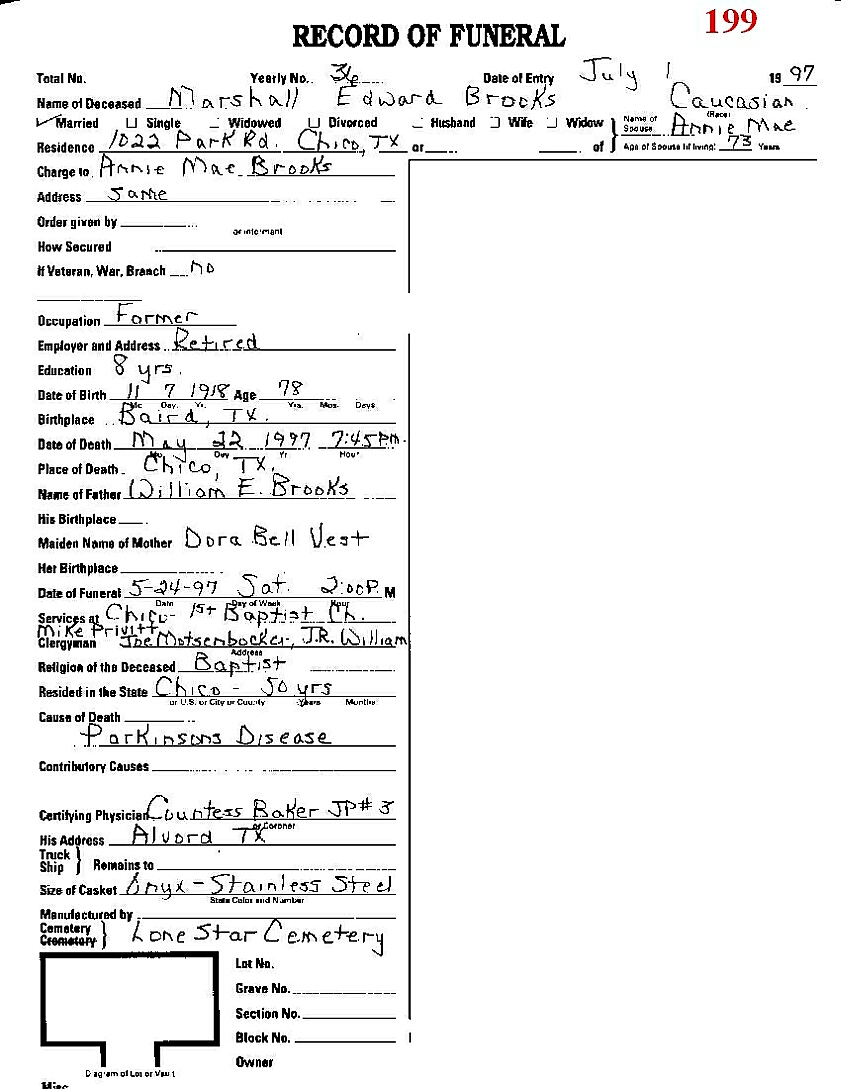 199
RECORD OF FUNERAL
Total No. Yearly No. 36 Date of Entry July 1 1997
Name of Deceased Marshall Edward Brooks Caucasian
(Race)
Married Single Widowed Divorced Husband Wife Widow } Name of Spouse Annie Mae
Residence 1022 Park Rd. Chico, TX or of } Age of Spouse (if living) 73 Years
Charge to Annie Mae Brooks
Address Same
Order given by
or informant
How Secured
If Veteran, War, Branch No
Occupation Farmer
Employer and Address Retired
Education 8 yrs.
Date of Birth 11 7 1918 Age 78
Mo. Day. Yr. Yrs. Mos. Days
Birthplace Baird, TX.
Date of Death May 22 1997 7:45 PM.
Mo. Day Yr Hour
Place of Death Chico, TX.
Name of Father William E. Brooks
His Birthplace
Maiden Name of Mother Dora Bell Vest
Her Birthplace
Date of Funeral 5-24-97 Sat. 2:00 P. M
Date Day of Week Hour
Services at Chico - 1st Baptist Ch.
Mike Privitt
Clergyman Joe Motsenbocker, J.R. William
Address
Religion of the Deceased Baptist
Resided in the State Chico - 50 yrs
or U.S. or City or County Years Months
Cause of Death
Parkinsons Disease
Contributory Causes
Certifying Physician Countess Baker JP# 3
or Coroner
His Address Alvord TX
Truck
Ship } Remains to
Size of Casket Onyx - Stainless Steel
State Color and Number
Manufactured by
Cemetery
Crematory } Lone Star Cemetery
Lot No.
Grave No.
Section No.
Block No.
Owner
Diagram of Lot or Vault
Misc.